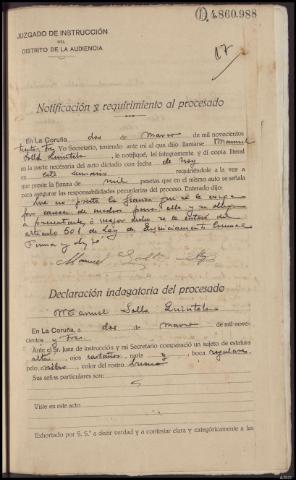 (1) 4.860.988
JUZGADO DE INSTRUCCIÓN
DEL
DISTRITO DE LA AUDIENCIA
17
Notificación y requirimiento al procesado
En La Coruña dos de Marzo de mil novecientos
treinta y tres Yo Secretario, teniendo ante mí al que dijo llamarse Manuel
Solla Quintela, le notifiqué, leí íntegramente y dí copia literal
en la parte necesaria del auto dictado con fecha de hoy
en este sumario requiriéndole a la vez a
que preste la fianza de mil pesetas que en el mismo auto se señala
para asegurar las responsabilidades pecuniarias del proceso. Enterado dijo:
Que no presta la fianza que se le exige
por carecer de medios para ello
artículo 501 de Ley de Enjuiciamiento Criminal
Firma y
Manuel Solla
Declaración indagatoria del procesado
Manuel Solla Quintela
En La Coruña, a dos de Marzo de mil nove-
cientos y tres.
Ante el Sr. Juez de instrucción y mi Secretario compareció un sujeto de estatura
alta, ojos castaños, nariz y boca regulares,
pelo color del rostro bueno
Sus señas particulares son:
Viste en este acto:
Exhortado por S. S.ª a decir verdad y a contestar clara y categóricamente a las